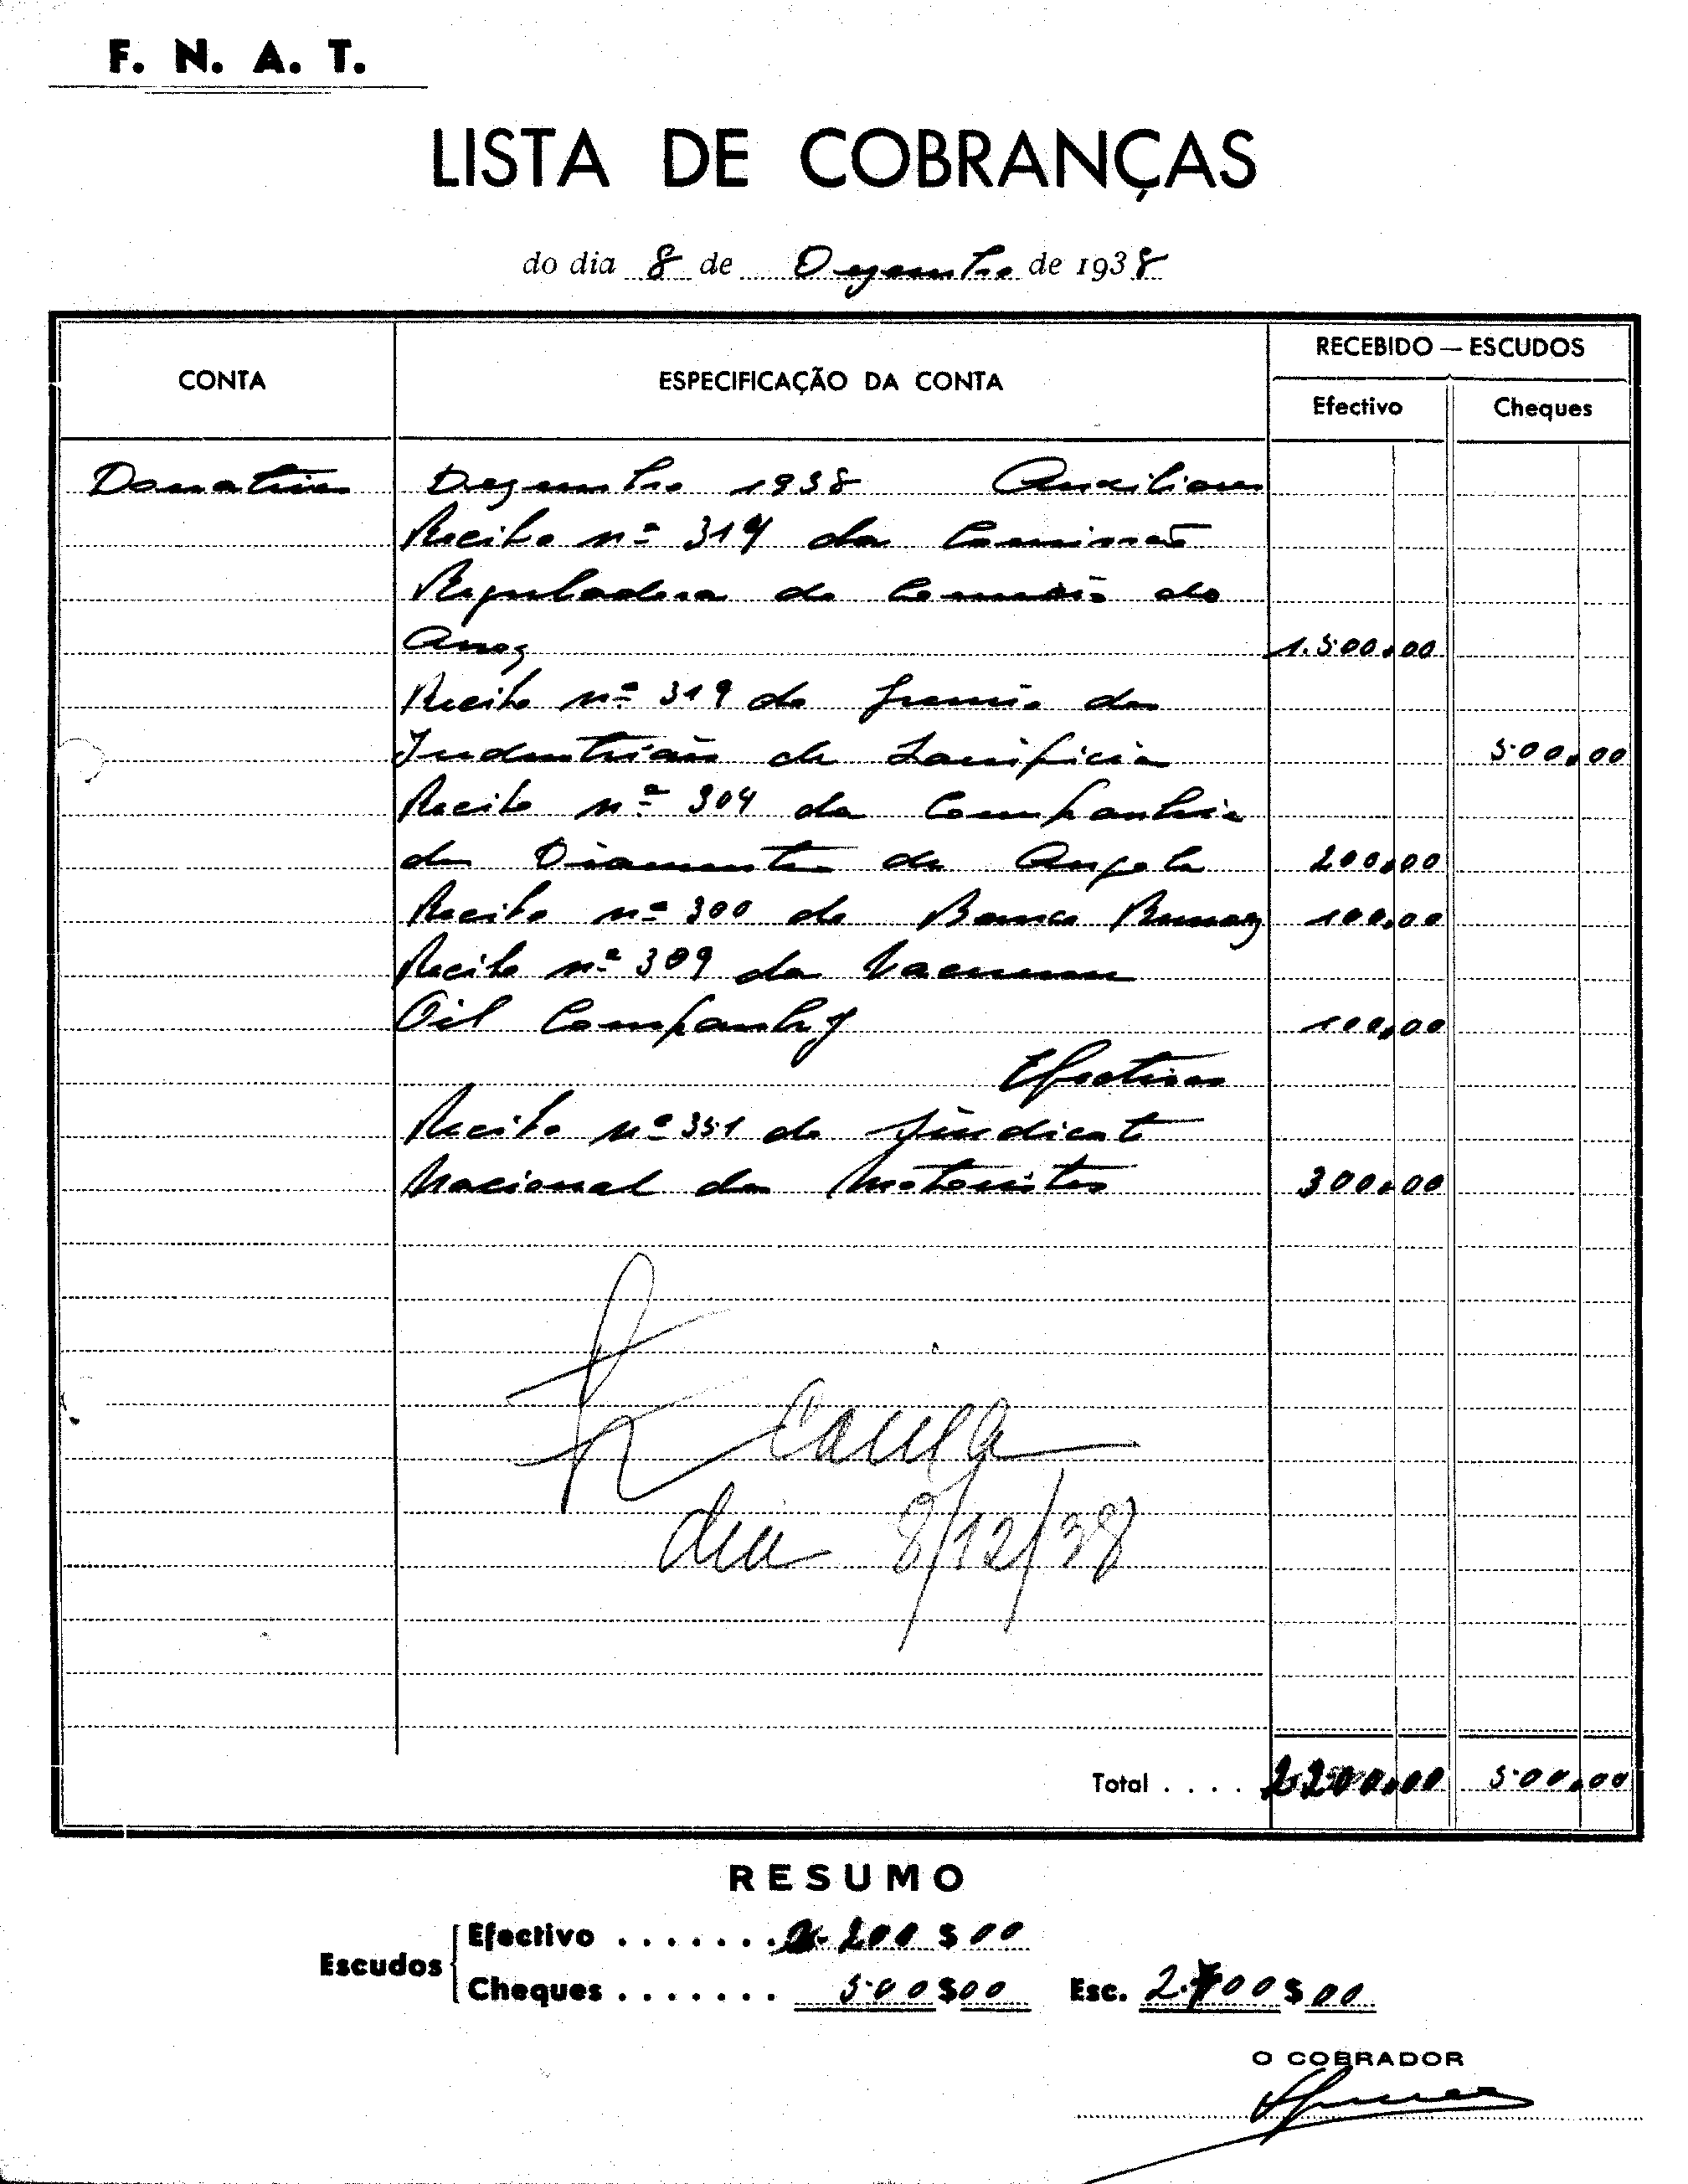 F. N. A. T.
LISTA DE COBRANÇAS
do dia 8 de Dezembro de 1938
CONTA
ESPECIFICAÇÃO DA CONTA
RECEBIDO — ESCUDOS
Efectivo
Cheques
Donativos Dezembro 1938 Auxiliares
Recibo nº 314 da Comissão
Reguladora do Comercio do
Arroz 1.500,00
Recibo nº 319 do Gremio dos
Industriais de Lanificios 500,00
Recibo nº 304 da Companhia
de Diamantes de Angola 200,00
Recibo nº 300 do Banco Burnay 100,00
Recibo nº 309 da Vacuum
Oil Companhy 100,00
Efectivos
Recibo nº 351 do Sindicato
Nacional dos Motoristas 300,00
dia 8/12/38
Total . . . . 2.200,00 500,00
RESUMO
Escudos
Efectivo . . . . . . . 2.200$00
Cheques . . . . . . . 500$00 Esc. 2.700$00
O COBRADOR